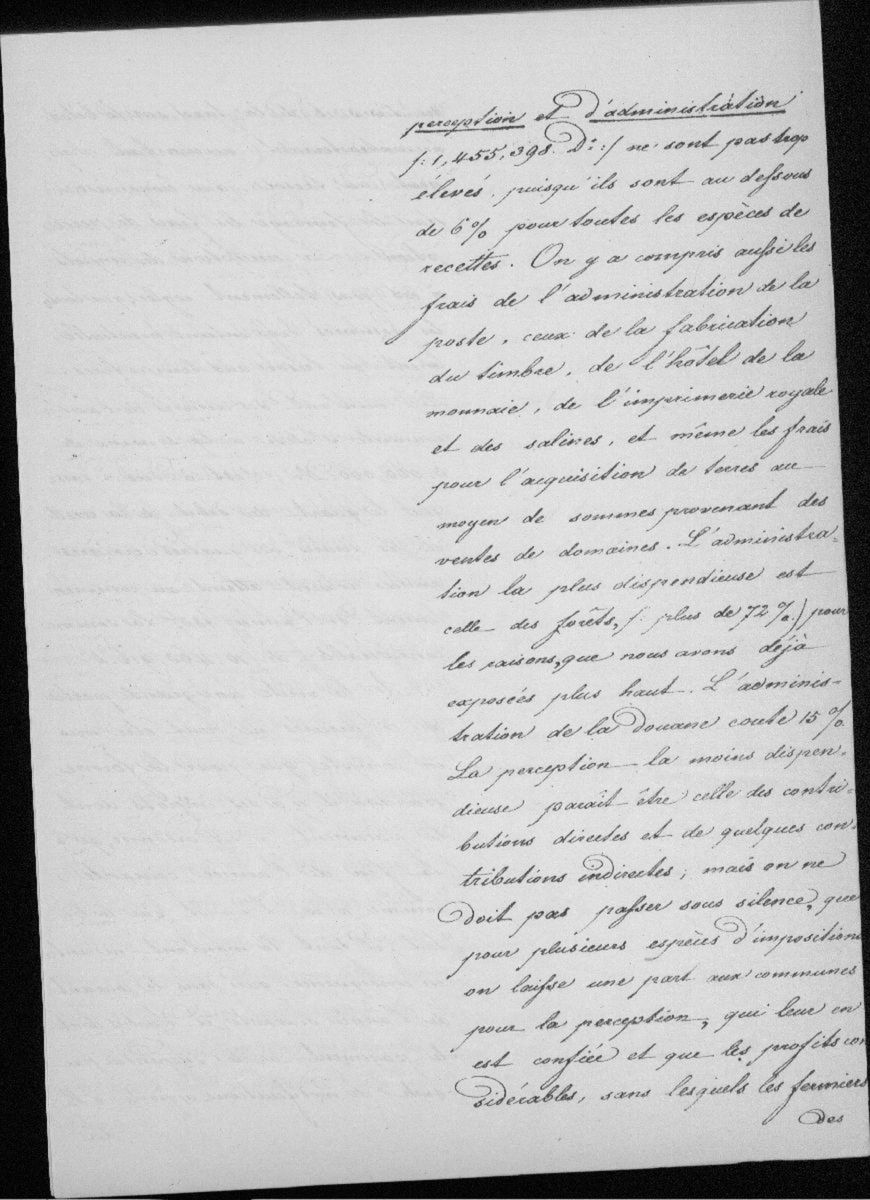 perception et d'administration
/: 1,455,398. Dr: :/ ne sont pas trop
élevés. puisqu'ils sont au dessous
de 6% pour toutes les espèces de
recettes. On y a compris aussi les
frais de l'administration de la
poste, ceux de la fabrication
du timbre, de l'hôtel de la
monnaie, de l'imprimerie royale
et des salines, et même les frais
pour l'acquisition de terres au
moyen de sommes provenant des
ventes de domaines. L'administra-
tion la plus dispendieuse est
celle des forêts, /: plus de 72%.) pour
les raisons, que nous avons déjà
exposées plus haut. L'adminis-
tration de la Douane coute 15%
La perception la moins dispen-
dieuse parait être celle des contri-
butions directes et de quelques con-
tributions indirectes; mais on ne
doit pas passer sous silence, que
pour plusieurs espèces d'impositions
on laisse une part aux communes
pour la perception, qui leur en
est confiée et que les profits con
sidérables, sans lesquels les fermiers
des